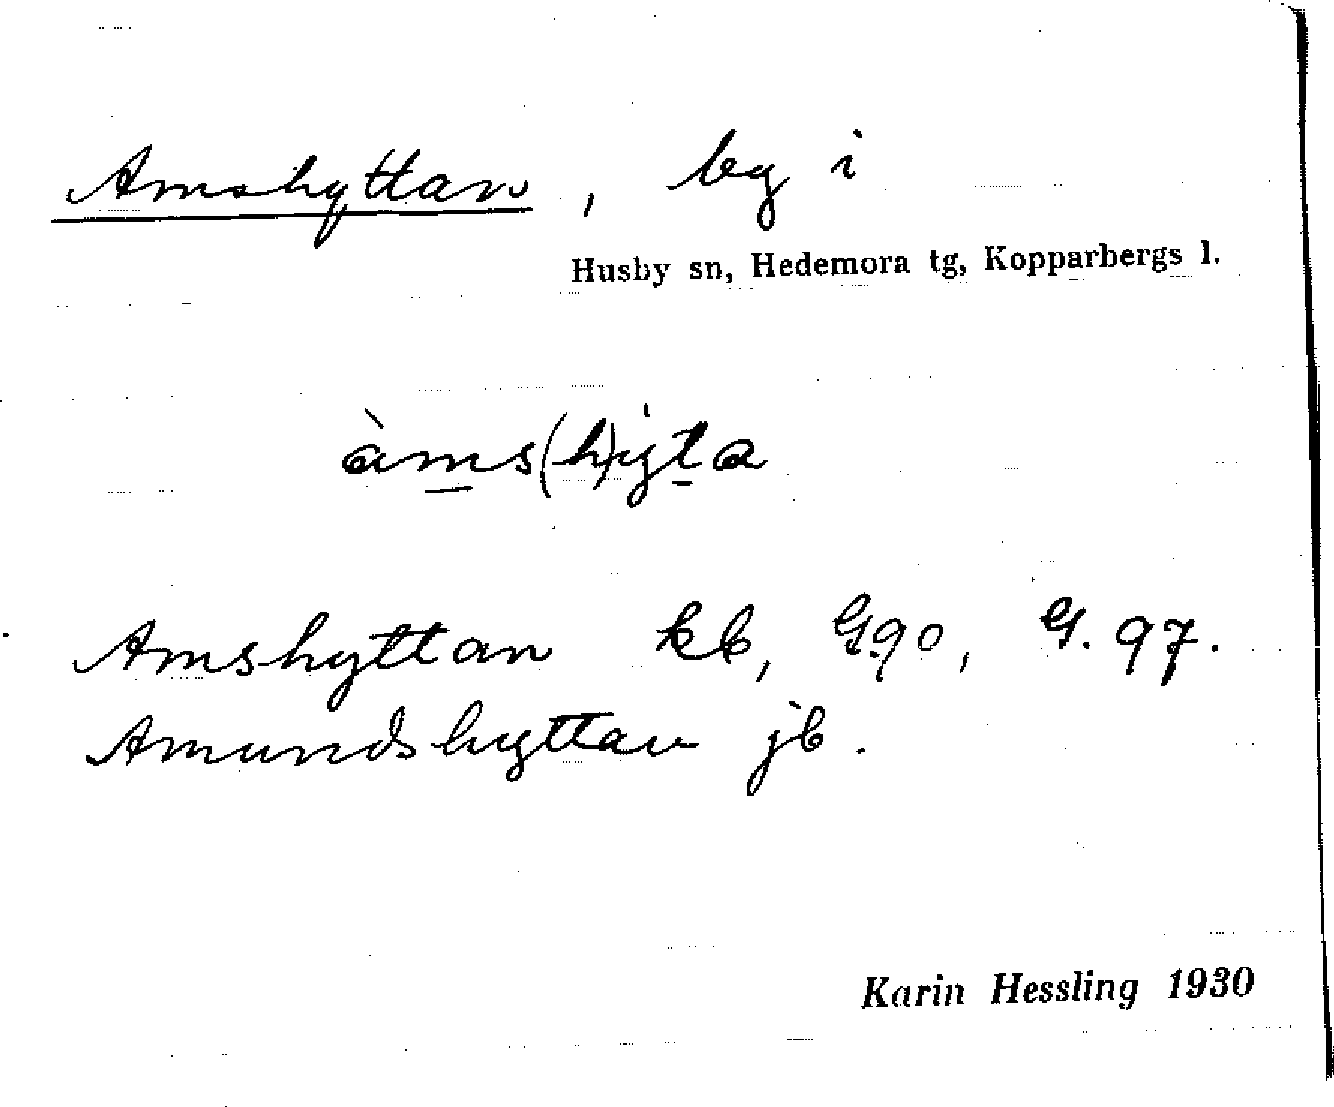 Amshyttan, by i
Husby sn, Hedemora tg, Kopparbergs l.
àms(h)yta
Amshyttan kb, G.90, G. 97.
Amundshyttan jb.
Karin Hessling 1930